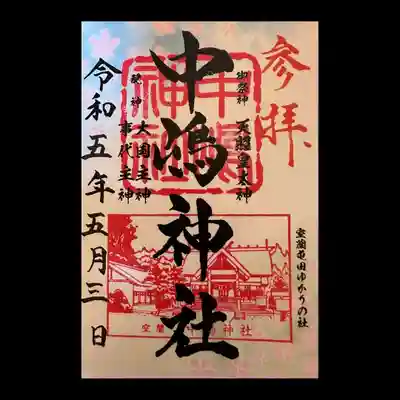 参拝
室蘭屯田ゆかりの社
御祭神 天照皇大神
中嶋神社
配神 大国主神
事代主神
令和五年五月三日
中嶋神社
室蘭 中嶋神社